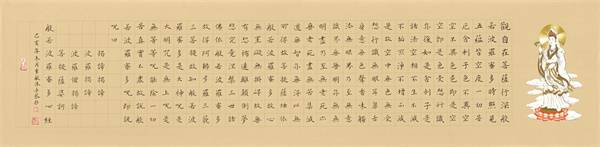 觀自在菩薩行深般
若波羅蜜多時照見
五蘊皆空度一切苦
厄舍利子色不異空
空不異色色即是空
空即是色受想行識
亦復如是舍利子是
諸法空相不生不滅
不垢不淨不增不減
是故空中無色無受
想行識無眼耳鼻舌
身意無色聲香味觸
法無眼界乃至無意
識界無無明亦無無
明盡乃至無老死亦
無老死盡無苦集滅
道無智亦無得以無
所得故菩提薩埵依
般若波羅蜜多故心
無罣礙無罣礙故無
有恐怖遠離顛倒夢
想究竟涅槃三世諸
佛依般若波羅蜜多
故得阿耨多羅三藐
三菩提故知般若波
羅蜜多是大神咒是
大明咒是無上咒是
無等等咒能除一切
苦真實不虛故說般
若波羅蜜多咒即說
咒曰
揭諦揭諦
波羅揭諦
波羅僧揭諦
菩提薩婆訶
般若波羅蜜多心經
己亥年